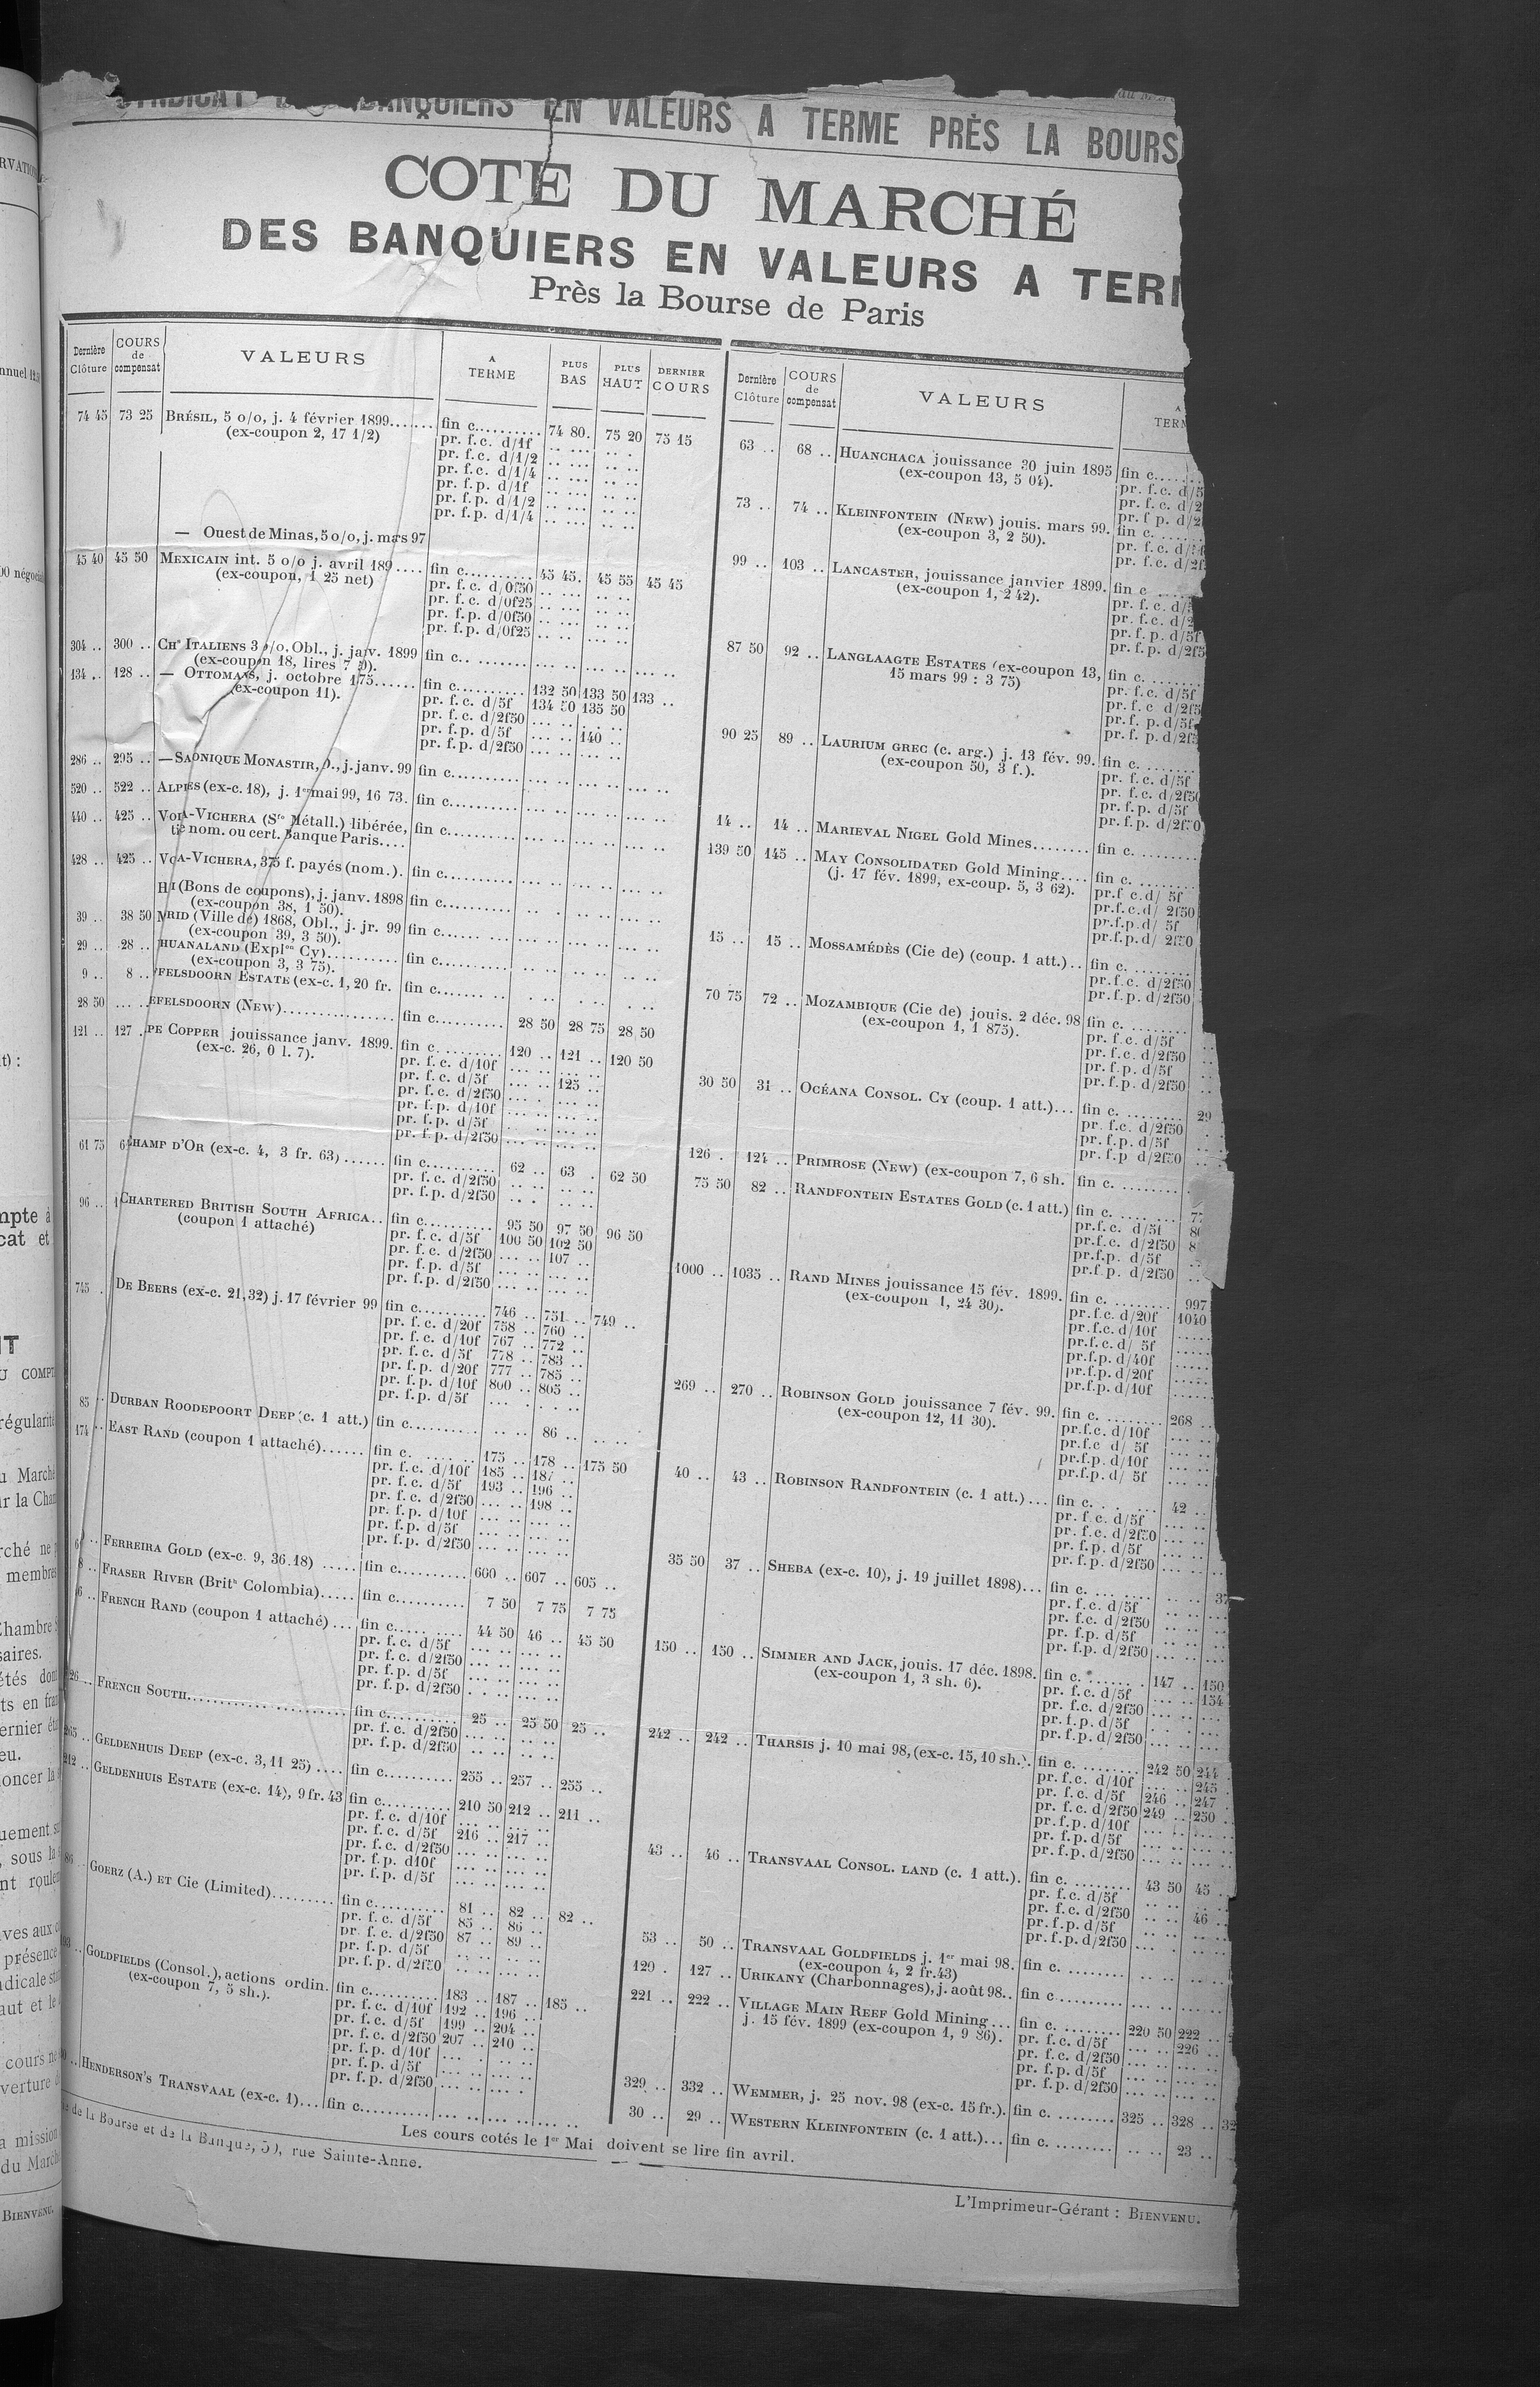 BANQUIERS EN VALEURS A TERME PRÈS LA BOURS
COTE DU MARCHÉ
DES BANQUIERS EN VALEURS A TER
Près la Bourse de Paris
Dernière Clôture COURS de compensat VALEURS A TERME PLUS BAS PLUS HAUT DERNIER COURS
74 45 73 25 BRÉSIL, 5 o/o, j. 4 février 1899...... fin c.......... 74 80. 75 20 75 15
(ex-coupon 2, 17 1/2) pr. f.c. d/1f .. ... .. .
pr. f.c. d/1/2 .. ... .. ..
pr. f.c. d/1/4 .. ... .. ..
pr. f.p. d/1f .. ... .. ..
pr. f.p. d/1/2 .. ... .. ..
pr. f.p. d/1/4 .. ... .. ..
— Ouest de Minas, 5 o/o, j. mars 97
45 40 45 50 MEXICAIN int. 5 o/o j. avril 189.... fin c.......... 45 45. 45 55 45 45
(ex-coupon, 1 25 net) pr. f.c. d/0f50 .. ... .. ..
pr. f.c. d/0f25 .. ... .. ..
pr. f.p. d/0f50 .. ... .. ..
pr. f.p. d/0f25 .. .. ... ..
304 .. 300 .. CHs ITALIENS 3 o/o, Obl., j. janv. 1899 fin c.. ........ ... .. ... .. ... ..
(ex-coupon 18, lires 7 ).
134 .. 128 .. — OTTOMANS, j. octobre 175...... fin c.......... 132 50 133 50 133 ..
(ex-coupon 11). pr. f.c. d/5f 134 50 135 50
pr. f.c. d/2f50 ... .. . . ..
pr. f.p. d/5f ... .. 140 ..
pr. f.p. d/2f50 ... .. ... ..
286 .. 295 .. —SAONIQUE MONASTIR, , j. janv. 99 fin c.......... ... .. ... .. ... ..
520 .. 522 .. ALPIES (ex-c. 18), j. 1er mai 99, 16 73. fin c.......... ... .. ... .. ... ..
440 .. 425 .. VOA-VICHERA (Sté Métall.) libérée, fin c.......... ... .. ... .. ... ..
nom. ou cert. Banque Paris....
428 .. 425 .. VOA-VICHERA, 375 f. payés (nom.). fin c.......... ... .. ... .. ... ..
(Bons de coupons), j. janv. 1898 fin c.......... .. . ... .. ... ..
(ex-coupon 38, 1 50).
39 .. 38 50 RID (Ville de) 1868, Obl., j. jr. 99 fin c...... ... ... .. ... .. ... ..
(ex-coupon 39, 3 50).
29 .. 28 .. HUANALAND (Explon Cy).......... fin c.......... .. .. .. .. .. ..
(ex-coupon 3, 3 75).
9 .. 8 .. FFELSDOORN ESTATE (ex-c. 1, 20 fr. fin c....... .. . .. . .. . ..
28 50 ... .. EFELSDOORN (NEW)................ fin c.......... 28 50 28 75 28 50
121 .. 127 . PE COPPER jouissance janv. 1899. fin c.......... 120 .. 121 .. 120 50
(ex-c. 26, 0 l. 7). pr. f.c. d/10f ... .. ... ..
pr. f.c. d/5f ... .. 125 ..
pr. f.c. d/2f50 ... . ... ..
pr. f.p. d/10f ... .. ... ..
pr. f.p. d/5f .. .. ... ..
pr. f.p. d/2f50 ... .. ... ..
61 75 6 CHAMP D'OR (ex-c. 4, 3 fr. 63)...... fin c.......... 62 .. 63 . 62 50
pr. f.c. d/2f50 .. .. .. ..
pr. f.p. d/2f50 .. . .. ..
96 .. 1 CHARTERED BRITISH SOUTH AFRICA.. fin c.......... 95 50 97 50 96 50
(coupon 1 attaché) pr. f.c. d/5f 100 50 102 50
pr. f.c. d/2f50 ... .. 107 ..
pr. f.p. d/5f ... .. ... ..
pr. f.p. d/2f50 ... .. ... ..
745 . DE BEERS (ex-c. 21,32) j. 17 février 99 fin c.......... 746 .. 751 .. 749 ..
pr. f.c. d/20f 758 .. 760 ..
pr. f.c. d/10f 767 .. 772 ..
pr. f.c. d/5f 778 .. 783 ..
pr. f.p. d/20f 777 .. 785 ..
pr. f.p. d/10f 800 .. 805 ..
pr. f.p. d/5f ... . . . ..
85 .. DURBAN ROODEPOORT DEEP (c. 1 att.) fin c.......... .. .. 86 .. .. ..
174 .. EAST RAND (coupon 1 attaché)...... fin c. ..... .. 175 .. 178 .. 175 50
pr. f.c. d/10f 185 .. 187 ..
pr. f.c. d/5f 193 .. 196 ..
pr. f.c. d/2f50 ... .. 198 ..
pr. f.p. d/10f ... .. ... ..
pr. f.p. d/5f ... .. ... ..
pr. f.p. d/2f50 ... .. ... ..
FERREIRA GOLD (ex-c. 9, 36.18) ..... fin c.......... 600 .. 607 .. 605 ..
8 .. FRASER RIVER (Brith Colombia)..... fin c.......... 7 50 7 75 7 75
6 .. FRENCH RAND (coupon 1 attaché).... fin c..... ..... 44 50 46 .. 45 50
pr. f.c. d/5f ... .. ... ..
pr. f.c. d/2f50 ... .. ... ..
pr. f.p. d/5f ... .. ... ..
pr. f.p. d/2f50 . . .. ... ..
26 .. FRENCH SOUTH...................... fin c.......... 25 .. 25 50 25 ..
pr. f.c. d/2f50 ... .. ... ..
pr. f.p. d/2f50 .. .. .. ..
265 .. GELDENHUIS DEEP (ex-c. 3, 11 25).... fin c.......... 255 .. 257 .. 255 ..
212 .. GELDENHUIS ESTATE (ex-c. 14), 9 fr. 43 fin c.......... 210 50 212 .. 211 ..
pr. f.c. d/10f ... .. ... ..
pr. f.c. d/5f 216 .. 217 ..
pr. f.c. d/2f50 ... .. ... ..
pr. f.p. d10f ... .. ... ..
pr. f.p. d/5f ... .. ... ..
86 .. GOERZ (A.) ET Cie (Limited)......... fin c.......... 81 .. 82 .. 82 ..
pr. f.c. d/5f 85 .. 86 ..
pr. f.c. d/2f50 87 .. 89 ..
pr. f.p. d/5f .. .. .. ..
pr. f.p. d/2f50 .. .. ... ..
GOLDFIELDS (Consol.), actions ordin. fin c.......... 183 .. 187 .. 185 ..
(ex-coupon 7, 5 sh.). pr. f.c. d/10f 192 .. 196 ..
pr. f.c. d/5f 199 .. 204 ..
pr. f.c. d/2f50 207 .. 210 ..
pr. f.p. d/10f ... . .. ..
pr. f.p. d/5f ... .. ... ..
pr. f.p. d/2f50 ... .. ... .
HENDERSON'S TRANSVAAL (ex-c. 1)... fin c.......... ... .. ... .. ... ..
Dernière Clôture COURS de compensat VALEURS A TERM
63 .. 68 .. HUANCHACA jouissance 30 juin 1895 fin c......
(ex-coupon 13, 5 04). pr. f.c. d/5
pr. f.c. d/2
pr. f p. d/2
73 .. 74 .. KLEINFONTEIN (NEW) jouis. mars 99. fin c. ......
(ex-coupon 3, 2 50). pr. f.c. d/
pr. f.c. d/2f
99 .. 103 .. LANCASTER, jouissance janvier 1899. fin c ......
(ex-coupon 1, 2 42). pr. f.c. d/5
pr. f.c. d/2
pr. f.p. d/5f
pr. f.p. d/2f5
87 50 92 .. LANGLAAGTE ESTATES (ex-coupon 13, fin c. ......
15 mars 99 : 3 75) pr. f.c. d/5f
pr. f.c d/2f5
pr. f. p. d/5f
pr. f. p. d/2f5
90 25 89 .. LAURIUM GREC (c. arg.) j. 13 fév. 99. fin c. ......
(ex-coupon 50, 3 f.). pr. f.c. d/5f
pr. f.c. d/2f50
pr. f.p. d/5f
pr. f.p. d/2f50
14 .. 14 .. MARIEVAL NIGEL Gold Mines........ fin c. .........
139 50 145 .. MAY CONSOLIDATED Gold Mining.... fin c. .........
(j. 17 fév. 1899, ex-coup. 5, 3 62). pr.f c.d/ 5f
pr.f.c.d/ 2f50
pr.f.p.d/ 5f
pr.f.p.d/ 2f50
15 .. 15 .. MOSSAMÉDÈS (Cie de) (coup. 1 att.).. fin c. ........
pr.f.c. d/2f50
pr.f.p. d/2f50
70 75 72 .. MOZAMBIQUE (Cie de) jouis. 2 déc. 98 fin c. ........
(ex-coupon 1, 1 875). pr. f.c. d/5f ..
pr. f.c. d/2f50 ..
pr. f.p. d/5f ..
pr. f.p. d/2f50 ..
30 50 31 .. OCÉANA CONSOL. CY (coup. 1 att.)... fin c. ........ 29
pr. f.c. d/2f50
pr. f.p. d/5f
pr. f.p d/2f50 ..
126 . 124 .. PRIMROSE (NEW) (ex-coupon 7, 6 sh. fin c. .........
75 50 82 .. RANDFONTEIN ESTATES GOLD (c. 1 att.) fin c. ........ 77
pr.f.c. d/5f 80
pr.f.c. d/2f50 8
pr.f.p. d/5f ..
pr.f.p. d/2f50 ..
1000 .. 1035 .. RAND MINES jouissance 15 fév. 1899. fin c. ........ 997
(ex-coupon 1, 24 30). pr.f.c. d/20f 1040
pr.f.c.d/10f .....
pr.f.c.d/ 5f .....
pr.f.p.d/40f .....
pr.f.p.d/20f .....
pr.f.p.d/10f .....
269 .. 270 .. ROBINSON GOLD jouissance 7 fév. 99. fin c. ........ 268 ..
(ex-coupon 12, 11 30). pr.f.c. d/10f ... ..
pr.f.c d/ 5f ... ..
pr.f.p. d/10f ... ..
pr.f.p.d/ 5f ... ..
40 .. 43 .. ROBINSON RANDFONTEIN (c. 1 att.)... fin c. . . ... 42 ..
pr. f.c. d/5f ... ..
pr. f.c. d/2f50 ... ..
pr. f.p. d/5f ... ..
pr. f.p. d/2f50 ... ..
35 50 37 .. SHEBA (ex-c. 10), j. 19 juillet 1898)... fin c. ... .... .. .. 37
pr. f.c. d/5f .. .. ..
pr. f.c. d/2f50 .. .. ..
pr. f.p. d/5f .. .. ...
pr. f.p. d/2f50 ... .. ...
150 .. 150 .. SIMMER AND JACK, jouis. 17 déc. 1898. fin c. ...... . 147 .. 150
(ex-coupon 1, 3 sh. 6). pr. f.c. d/5f ... .. 154
pr. f.c. d/2f50 ... .. ...
pr. f.p. d/5f . . . ...
pr. f.p. d/2f50 ... .. ...
242 .. 242 .. THARSIS j. 10 mai 98, (ex-c. 15, 10 sh.). fin c. ........ 242 50 244 .
pr. f.c. d/10f ... .. 245 .
pr. f.c. d/5f 246 .. 247 .
pr. f.c. d/2f50 249 .. 250 .
pr. f.p. d/10f ... . ... .
pr. f.p. d/5f ... .. ... ..
pr. f.p. d/2f50 ... .. ... ..
43 .. 46 .. TRANSVAAL CONSOL. LAND (c. 1 att.). fin c. ........ 43 50 45 ..
pr. f.c. d/5f .. .. .. ..
pr. f.c. d/2f50 .. .. 46 ..
pr. f.p. d/5f .. .. .. ..
pr. f.p. d/2f50 ... . ... ..
53 .. 50 .. TRANSVAAL GOLDFIELDS j. 1er mai 98. fin c. ........ .. .. .. ..
(ex-coupon 4, 2 fr.43)
129 . 127 .. URIKANY (Charbonnages), j. août 98.. fin c.......... ... .. ... ..
221 .. 222 .. VILLAGE MAIN REEF Gold Mining... fin c. ........ 220 50 222 ..
j. 15 fév. 1899 (ex-coupon 1, 9 86). pr. f.c. d/5f ... .. 226 ..
pr. f.c. d/2f50 ... .. ... ..
pr. f.p. d/5f ... .. ... ..
pr. f.p. d/2f50 ... .. ... ..
329 .. 332 .. WEMMER, j. 25 nov. 98 (ex-c. 15 fr.). fin c. ........ 325 .. 328 .. 32
30 .. 29 .. WESTERN KLEINFONTEIN (c. 1 att.)... fin c. ........ .. .. 23 ..
Les cours cotés le 1er Mai doivent se lire fin avril.
de la Bourse et de la Banque, rue Sainte-Anne.
L'Imprimeur-Gérant : BIENVENU.